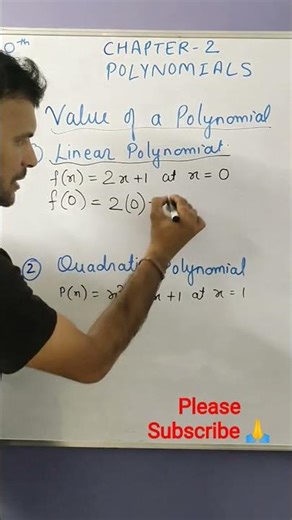 0th
CHAPTER-2
POLYNOMIALS
Value of a Polynomial
Linear Polynomial.
f(x) = 2x+1 at x=0
f(0) = 2(0)
② Quadratic Polynomial
P(x) = x² x+1 at x=1
Please
Subscribe 🙏